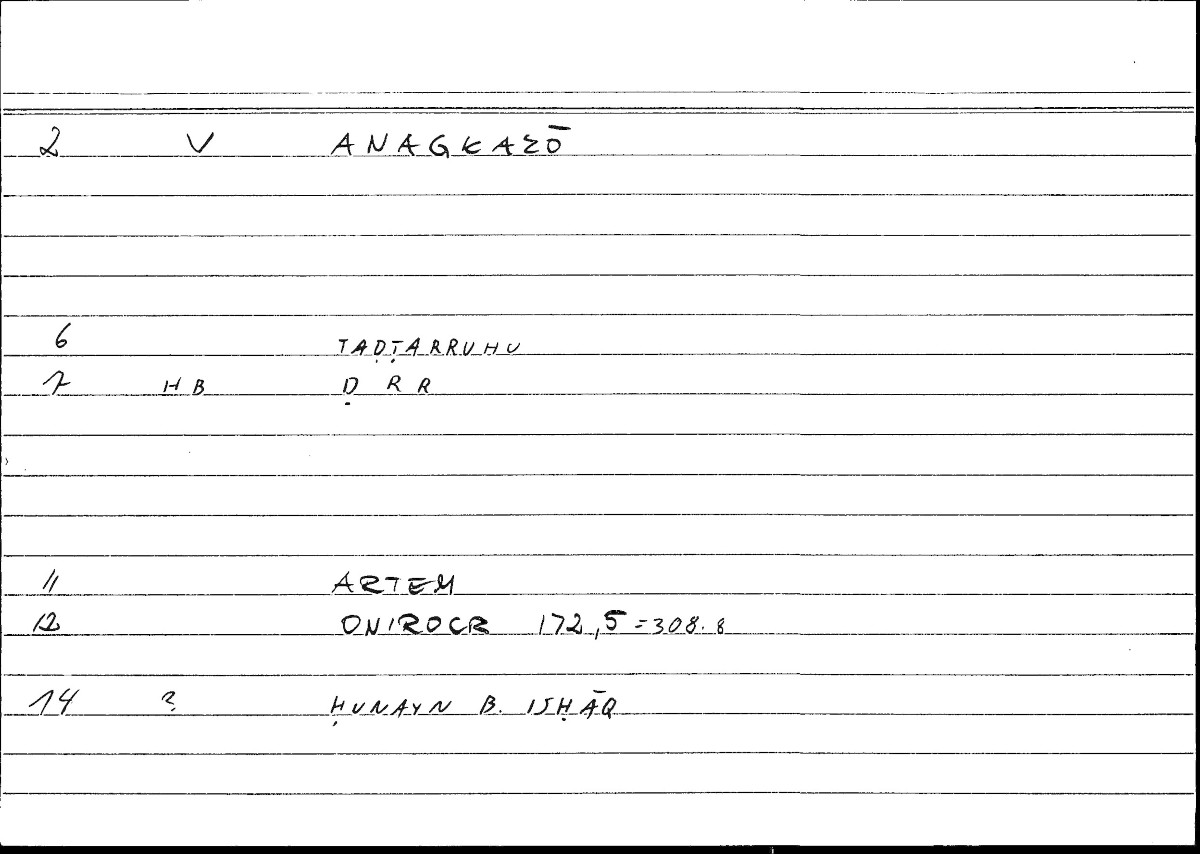 2 V ANAGKAZŌ
6 TAḌṬARRUHU
7 HB Ḍ R R
11 ARTEM
12 ONIROCR 172,5=308.8
14 ? ḤUNAYN B. ISḤĀQ